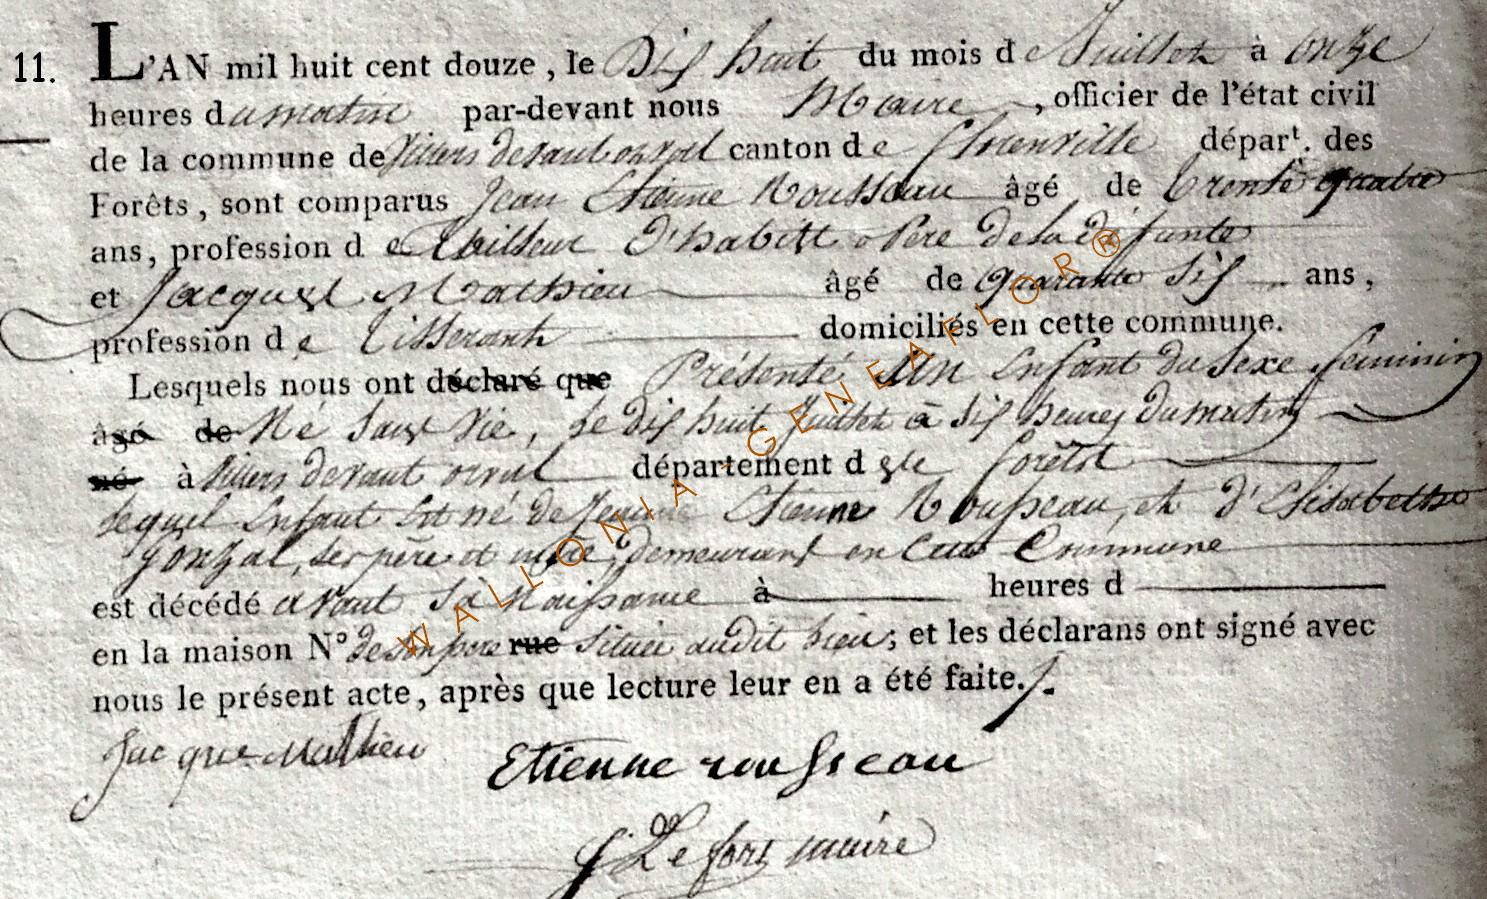 11. L'AN mil huit cent douze, le Dix huit du mois de Juillet à onze
heures du matin par-devant nous Maire, officier de l'état civil
de la commune de Villers devant orval canton de florenville départ. des
Forêts, sont comparus Jean Etienne Rousseau âgé de trente quatre
ans, profession de tailleur D'habitt Pere De la défunte
et Jacques Mathieu âgé de quarante six ans,
profession de tisserant domiciliés en cette commune.
Lesquels nous ont déclaré que Présenté un Enfant du Sexe féminin
âgé de Né sans vie, le dix huit Juillet à six heures du matin
né à Villers devant orval département des forêts
lequel Enfant est né de Etienne Rousseau, et d'Elisabethe
gonzal, ses père et mère, demeurant en Commune
est décédé avant sa Naissance à heures d
en la maison N° de son pere rue située audit lieu; et les déclarans ont signé avec
nous le présent acte, après que lecture leur en a été faite./.
Jacque Mathieu Etienne rousseau
Lefort maire
WALLONIA - GENEAFLOR®